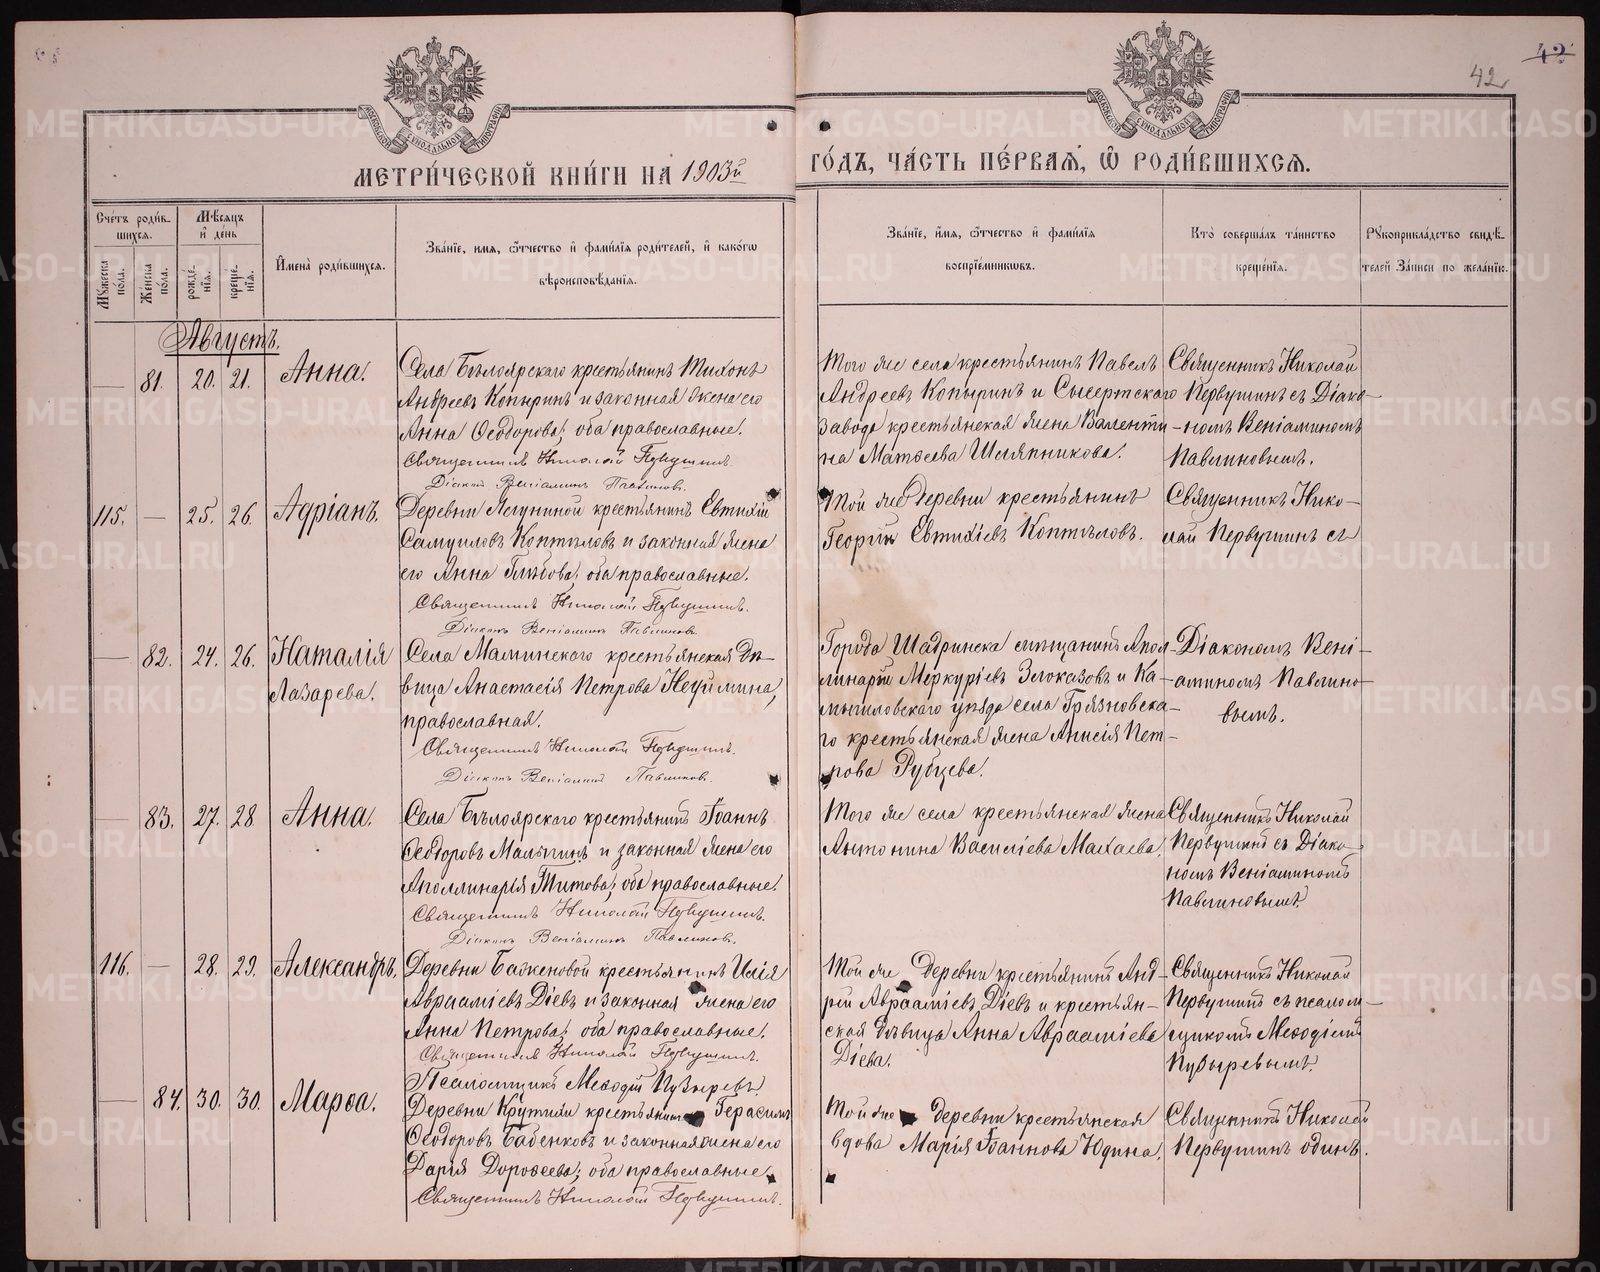 42
42
МЕТРИ́ЧЕСКОЙ КНИ́ГИ НА 1903й
ГО́ДЪ, ЧА́СТЬ ПЕ́РВАЯ, Ѡ РОДИ́ВШИХСЯ.
Сче́тъ роди́в-
шихся.
Мѣ́сяцъ
и де́нь
Му́жеска по́ла.
Же́нска по́ла.
рожде́-
нїя.
креще́-
нїя.
Имена̀ роди́вшихся.
Зва́нїе, имя, ѻ҆́тчество и фами́лїя роди́телей, и како́гѡ
вѣроисповѣ́данїя.
Зва́нїе, имя, ѻ҆́тчество и фами́лїя
воспрїе́мникѡвъ.
Кто̀ соверша́лъ та́инство
креще́нїя.
Рꙋкоприкла́дство свидѣ́-
телей За́писи по жела́нїю.
Августъ.
— 81. 20. 21. Анна.
Села Бѣлоярскаго крестьянинъ Тихонъ
Андреевъ Копыринъ и законная жена его
Анна Ѳеодорова; оба православные.
Священникъ Николай Первушинъ.
Діаконъ Веніаминъ Павлиновъ.
Того же села крестьянинъ Павелъ
Андреевъ Копыринъ и Сысертскаго
завода крестьянская жена Валенти-
на Матѳеева Шляпникова.
Священникъ Николай
Первушинъ съ Діако-
номъ Веніаминомъ
Павлиновымъ.
115. — 25. 26. Адріанъ.
Деревни крестьянинъ Евтихій
Самуиловъ Коптѣловъ и законная жена
его Анна Глѣбова; оба православные.
Священникъ Николай Первушинъ.
Діаконъ Веніаминъ Павлиновъ.
Той же деревни крестьянинъ
Георгій Евтихіевъ Коптѣловъ.
Священникъ Нико-
лай Первушинъ съ
— 82. 24. 26. Наталія
Лазарева.
Села Маминскаго крестьянская дѣ-
вица Анастасія Петрова Неуймина,
православная.
Священникъ Николай Первушинъ.
Діаконъ Веніаминъ Павлиновъ.
Города Шадринска мѣщанинъ Апол-
линарій Меркуріевъ Злоказовъ и Ка-
мышловскаго уѣзда села Грязновска-
го крестьянская жена Анисія Пет-
рова Рубцева.
Діакономъ Вені-
аминомъ Павлино-
вымъ.
— 83. 27. 28 Анна.
Села Бѣлоярскаго крестьянинъ Іоаннъ
Ѳеодоровъ Малыгинъ и законная жена его
Аполлинарія Титова; оба православные.
Священникъ Николай Первушинъ.
Діаконъ Веніаминъ Павлиновъ.
Того же села крестьянская жена
Антонина Василіева Махаева.
Священникъ Николай
Первушинъ съ Діако-
номъ Веніаминомъ
Павлиновымъ.
116. — 28. 29. Александръ.
Деревни Баженовой крестьянинъ Илія
Авраамiевъ Діевъ и законная жена его
Анна Петрова; оба православные.
Священникъ Николай Первушинъ.
Псаломщикъ Меѳодій Пузыревъ.
Той же деревни крестьянинъ Анд-
рей Авраамiевъ Діевъ и крестьян-
ская дѣвица Анна Авраамiева
Діева.
Священникъ Николай
Первушинъ съ псалом-
щикомъ Меѳодіемъ
Пузыревымъ.
— 84. 30. 30. Марѳа.
Деревни Крутихи крестьянинъ Герасимъ
Ѳеодоровъ Бабенковъ и законная жена его
Дарія Дороѳеева; оба православные.
Священникъ Николай Первушинъ.
Той же деревни крестьянская
вдова Марія Іоаннова Юдина.
Священникъ Николай
Первушинъ одинъ.
METRIKI.GASO-URAL.RU